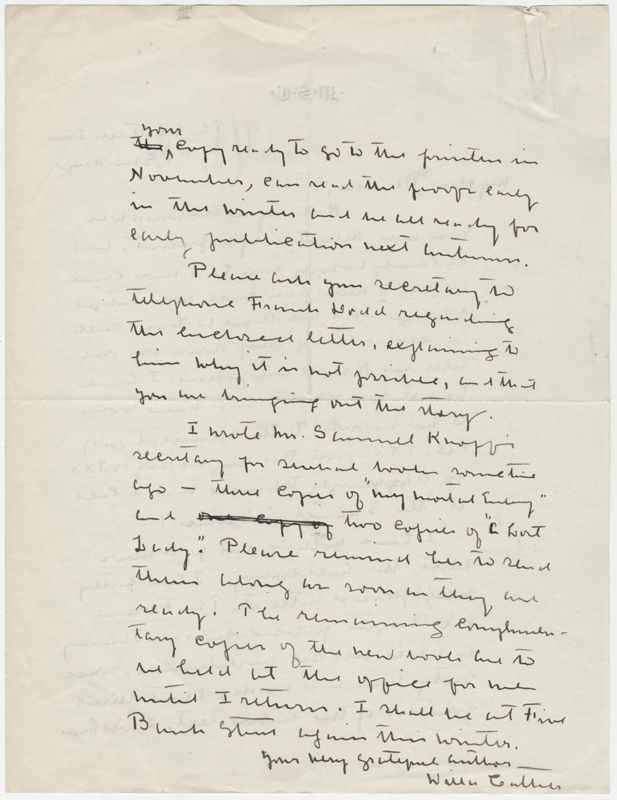 your
the ^ copy ready to go to the printer in
November, can read the proofs early
in the winter and be all ready for
early publication next autumn.
Please ask your secretary to
telephone Frank Dodd regarding
the enclosed letter, explaining to
him why it is not possible, and that
you are bringing out the story.
I wrote Mr. Samuel Knopf's
secretary for several books sometime
ago — three copies of "My Mortal Enemy"
and one copy of two copies of "A Lost
Lady". Please remind her to send
them along as soon as they are
ready. The remaining complimen-
tary copies of the new book are to
be held at the office for me
until I return. I shall be at Five
Bank Street again this winter.
Your very grateful author
Willa Cather